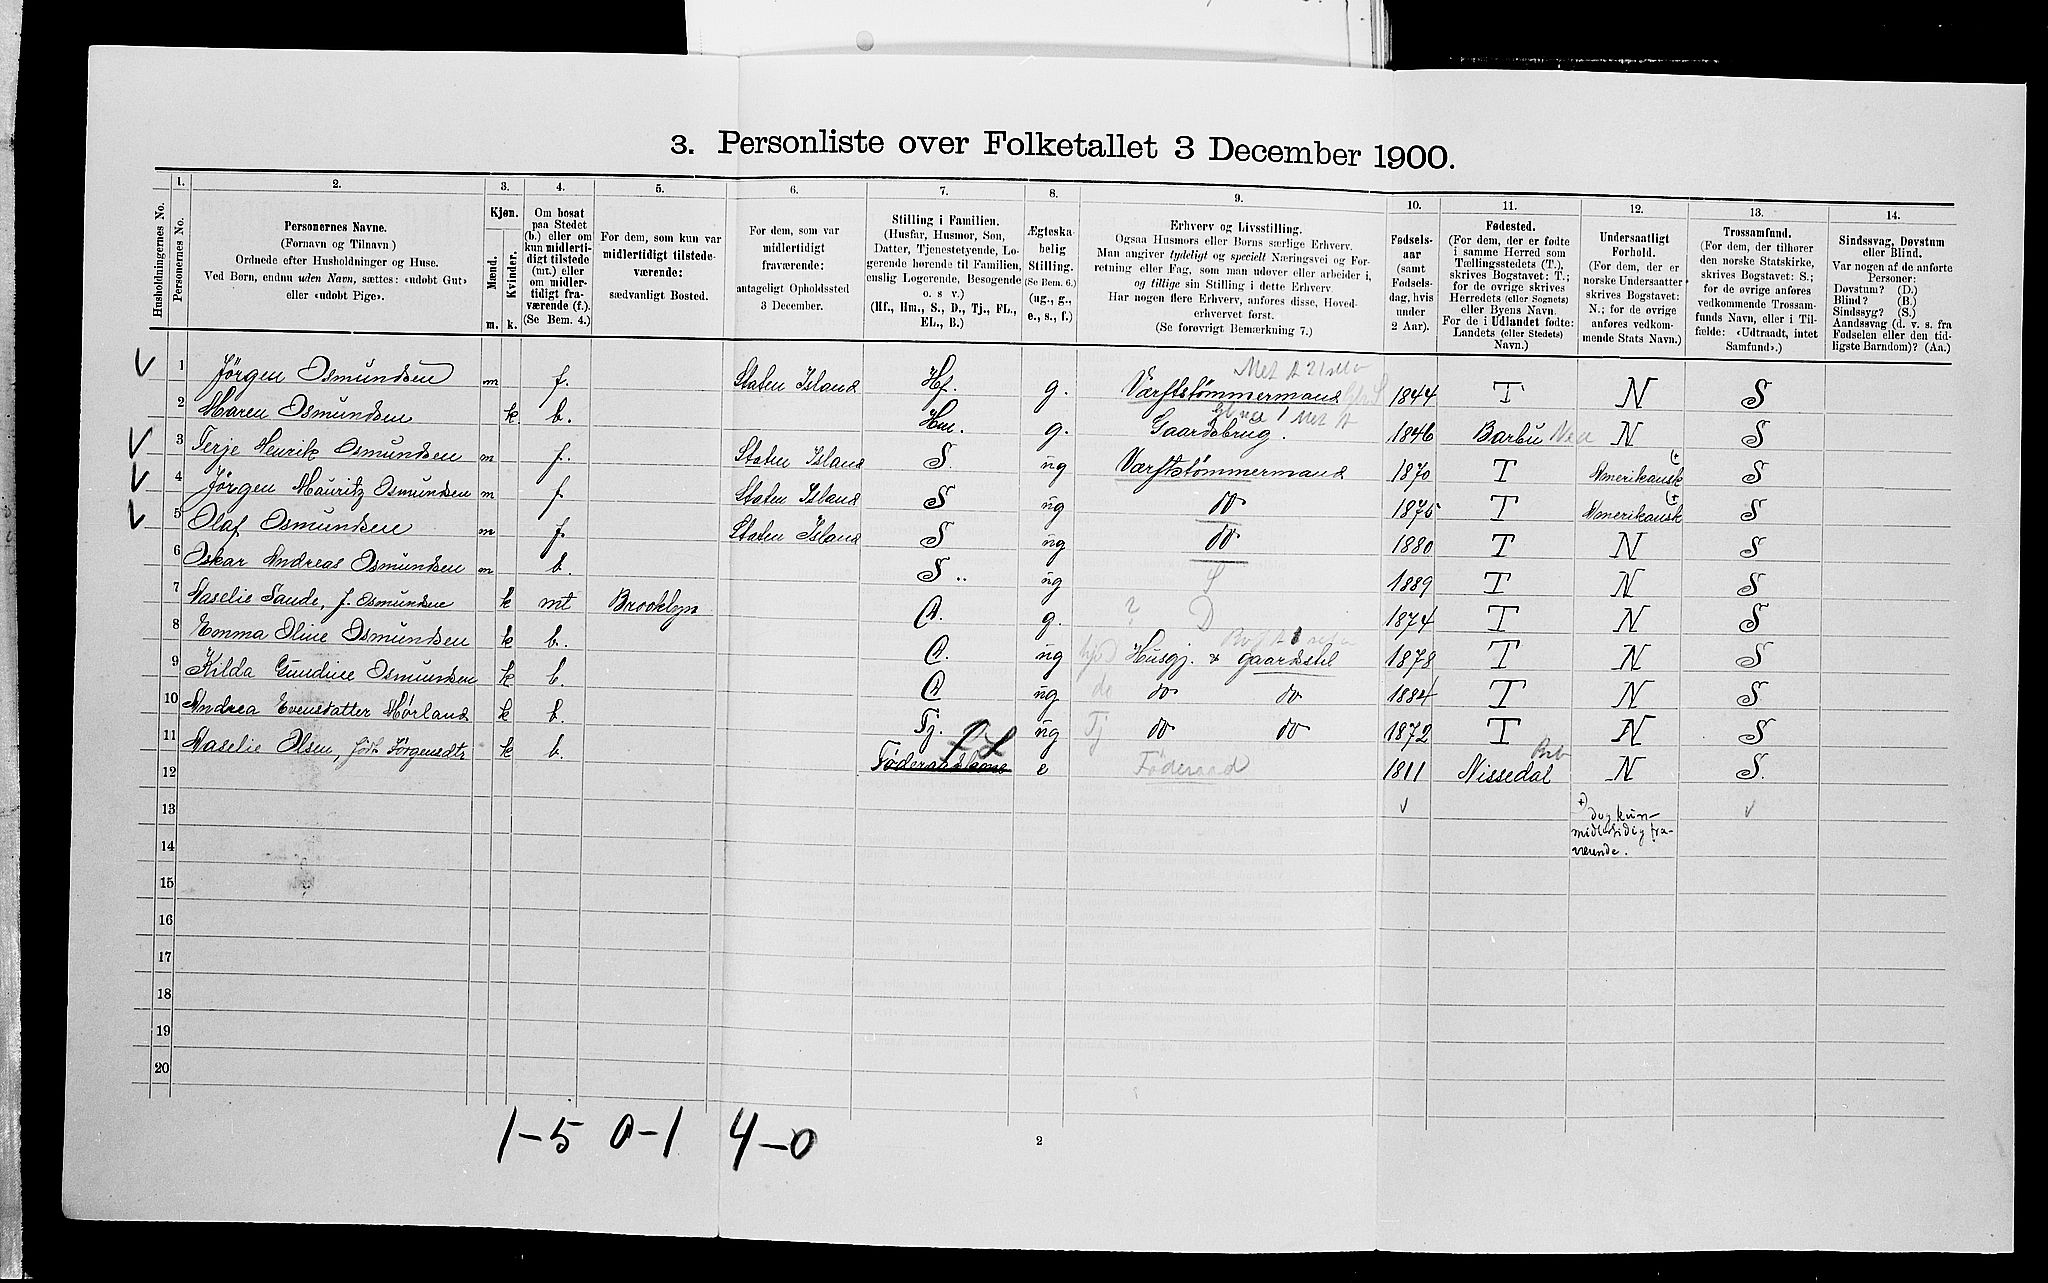 3. Personliste over Folketallet 3 December 1900.
Husholdningernes No.
1.
Personernes No.
2.
Personernes Navne.
(Fornavn og Tilnavn)
Ordnede efter Husholdninger og Huse.
Ved Børn, endnu uden Navn, sættes: «udøbt Gut»
eller «udøbt Pige».
3.
Kjøn.
Mænd.
Kvinder.
m. k.
4.
Om bosat
paa Stedet
(b.) eller om
kun midlerti-
digt tilstede
(mt.) eller
om midler-
tidigt fra-
værende (f.).
(Se Bem. 4.)
5.
For dem, som kun var
midlertidigt tilstede-
værende:
sædvanligt Bosted.
6.
For dem, som var
midlertidigt
fraværende:
antageligt Opholdssted
3 December.
7.
Stilling i Familien.
(Husfar, Husmor, Søn,
Datter, Tjenestetyende, Lo-
gerende hørende til Familien,
enslig Logerende, Besøgende
o. s v.)
(Hf., Hm., S., D., Tj., FL.,
EL., B.)
8.
Ægteska-
belig
Stilling.
(Se Bem. 6.)
(ug., g.,
e., s., f.)
9.
Erhverv og Livsstilling.
Ogsaa Husmors eller Børns særlige Erhverv.
Man angiver tydeligt og specielt Næringsvei og For-
retning eller Fag, som man udøver eller arbeider i,
og tillige sin Stilling i dette Erhverv
Har nogen flere Erhverv, anføres disse, Hoved-
erhvervet først.
(Se forøvrigt Bemærkning 7.)
10.
Fødsels-
aar
(samt
Fødsels-
dag, hvis
under
2 Aar).
11.
Fødested.
(For dem, der er fødte
i samme Herred som
Tællingsstedets (T.),
skrives Bogstavet: T.;
for de øvrige skrives
Herredets (eller Sognets)
eller Byens Navn.
For de i Udlandet fødte:
Landets (eller Stedets)
Navn.)
12.
Undersaatligt
Forhold.
(For dem, der er
norske Undersaatter
skrives Bogstavet:
N.; for de øvrige
anføres vedkom-
mende Stats Navn.)
13.
Trossamfund.
(For dem, der tilhører
den norske Statskirke,
skrives Bogstavet: S.;
for de øvrige anføres
vedkommende Trossam-
funds Navn, eller i Til-
fælde: «Udtraadt, intet
Samfund».)
14.
Sindssvag, Døvstum
eller Blind.
Var nogen af de anførte
Personer:
Døvstum? (D.)
Blind? (B.)
Sindssyg? (S.)
Aandssvag (d. v. s. fra
Fødselen eller den tid-
ligste Barndom)? (Aa.)
1 Jørgen Osmundsen m f. Staten Island Hf. g. Værftstømmermand 1844 T N S
2 Maren Osmundsen k. b. Hm. g. Gaardsbrug. 1846 Barbu N S
3 Terje Henrik Osmundsen m f. Staten Island S. ug Værftstømmermand 1870 T Amerikansk S
4 Jørgen Mauritz Osmundsen m f Staten Island S ug do 1875 T Amerikansk S
5 Olaf Osmundsen m f. Staten Island S ug do 1880 T N S
6 Oskar Andreas Osmundsen m b. S.. ug S 1889 T N S
7 Aaselie Sande, f. Osmundsen k mt Brooklyn D. g. ? D 1874 T N S
8 Emma Oline Osmundsen k b. D. ug Husgj. & gaardsstel 1878 T N S
9 Hilda Gundine Osmundsen k b. D ug do do do 1884 T N S
10 Andrea Evensdatter Mørland k b. Tj. ug Tj do do 1872 T N S
11 Aaselie Olsen, født Jørgensdtr k b. Føderaadskone e Føderaad 1811 Nissedal N S.
12
13
14
+) dog kun
midlertidig fra-
værende.
15
16
17
18
19
20
1-5 0-1 4-0
2